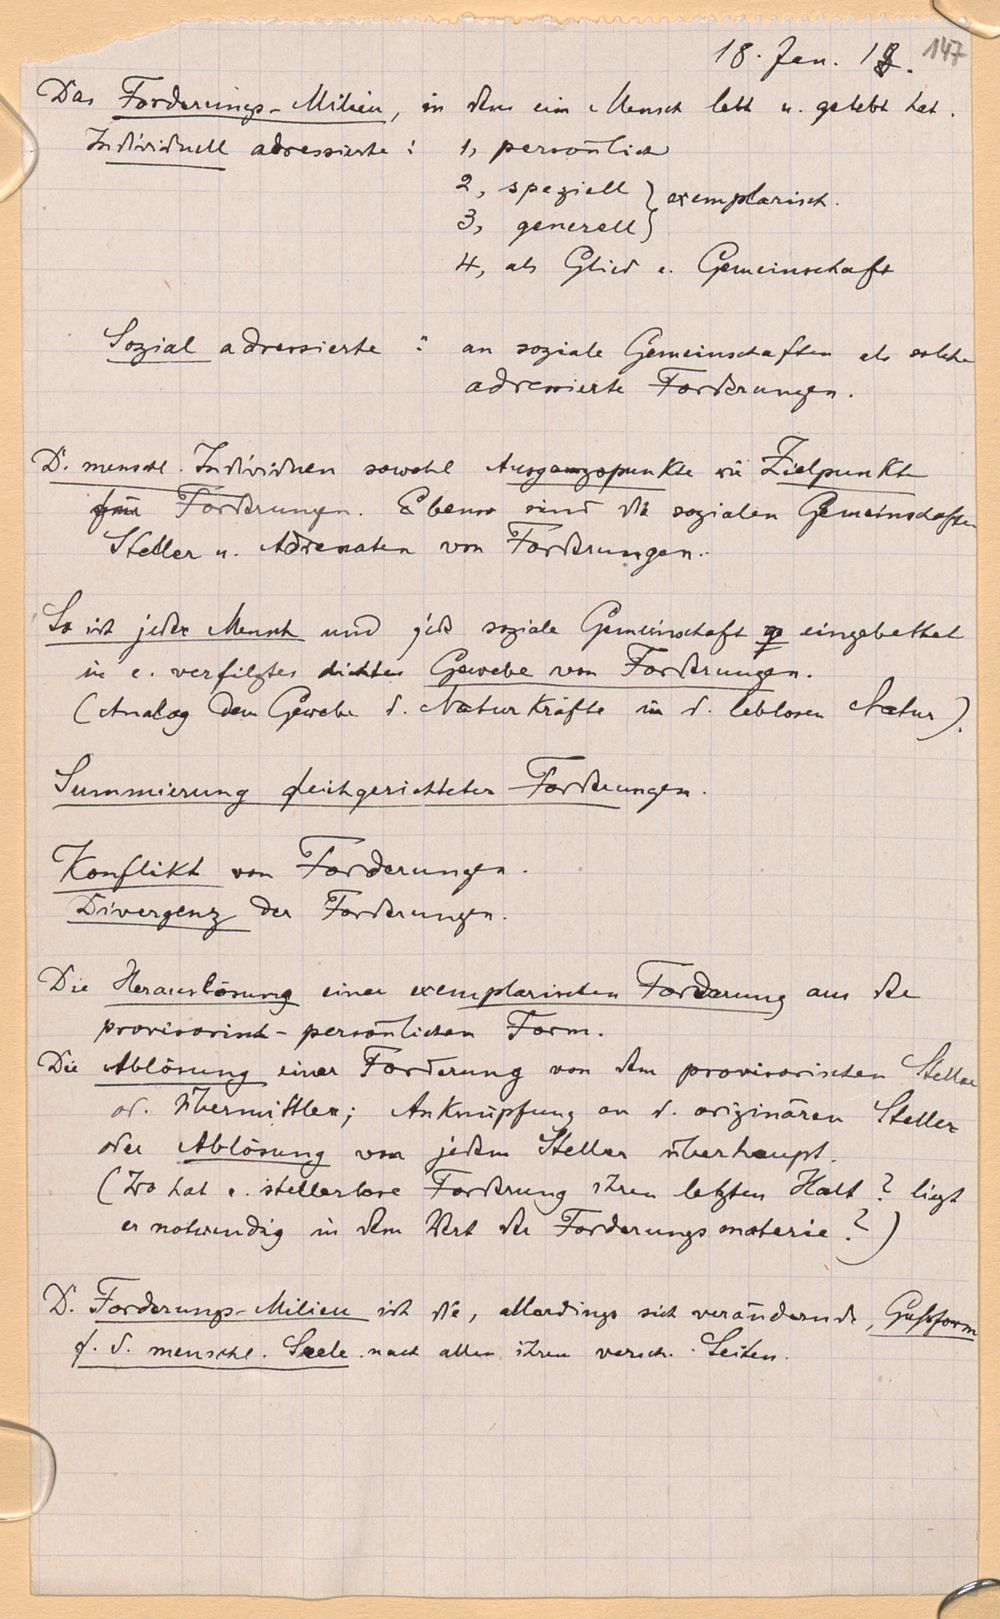 147
18. Jan. 18.
Das Forderungs-Milieu, in dem ein Mensch lebt u. gelebt hat.
Individuell adressierte: 1, persönlich
2, speziell } exemplarisch.
3, generell }
4, als Glied e. Gemeinschaft
Sozial adressierte: an soziale Gemeinschaften als solche
adressierte Forderungen.
D. menschl. Individuen sowohl Ausgangspunkte wie Zielpunkte
für Forderungen. Ebenso sind die sozialen Gemeinschaften
Steller u. Adressaten von Forderungen.
So ist jeder Mensch und jede soziale Gemeinschaft eingebettet
in e. verfilztes dichtes Gewebe von Forderungen.
(Analog dem Gewebe d. Naturkräfte in d. leblosen Natur).
Summierung gleichgerichteter Forderungen.
Konflikt von Forderungen.
Divergenz der Forderungen.
Die Herauslösung einer exemplarischen Forderung aus der
provisorisch-persönlichen Form.
Die Ablösung einer Forderung von dem provisorischen Steller
od. Übermittler; Anknüpfung an d. originären Steller
oder Ablösung von jedem Steller überhaupt.
(Wo hat e. stellerlose Forderung ihren letzten Halt? liegt
er notwendig in dem Wert der Forderungsmaterie?)
D. Forderungs-Milieu ist die, allerdings sich verändernde, Gußform
f. d. menschl. Seele nach allen ihren versch. Seiten.